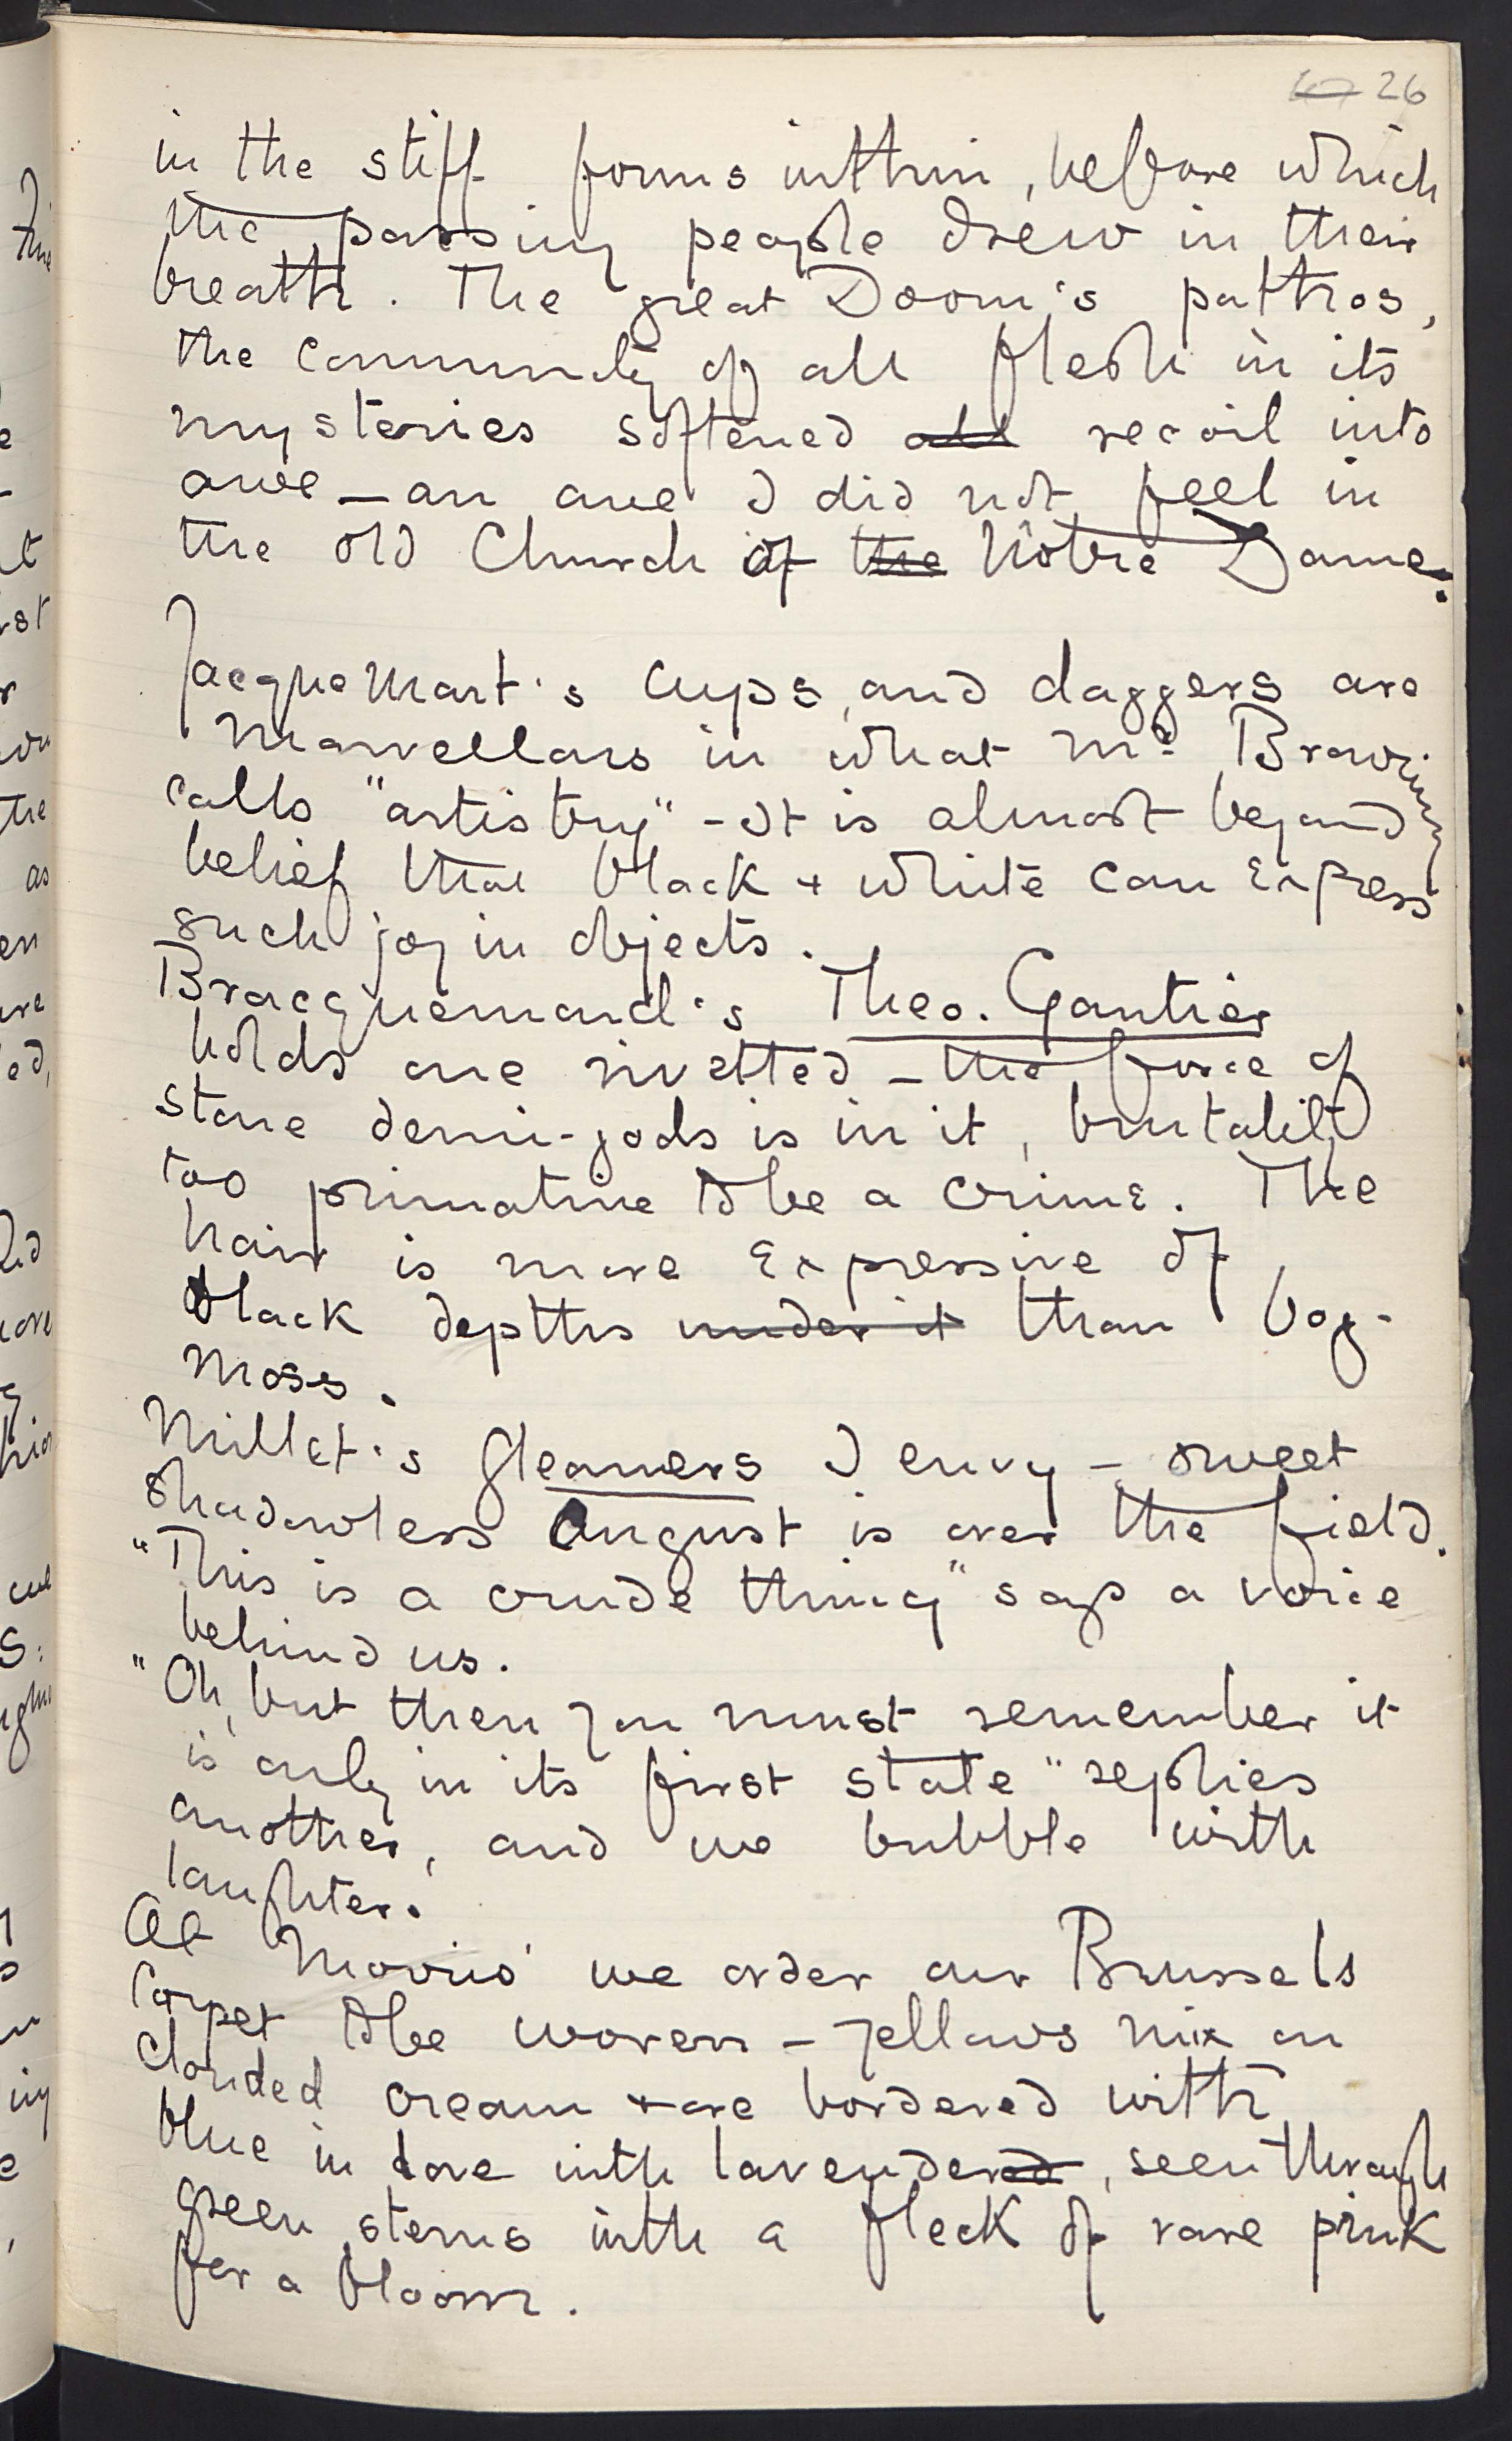 26
in the stiff forms within, before which
the passing people drew in their
breath. The great Doom's pathos,
the community of all flesh in its
mysteries softened all recoil into
awe – an awe I did not feel in
the old Church of the Nôtre Dame.
Jacquemart's cups, and daggers are
marvellous in what Mr. Browning
calls "artistry" – It is almost beyond
belief that black + white can express
such joy in objects.
Bracquemond's Theo. Gautier
holds one rivetted – the force of
stone demi-gods is in it, brutality
too primative to be a crime. The
hair is more expressive of
black depths under it than bog-
moss.
Millet's Gleaners I envy – sweet
shadowless August is over the field.
"This is a crude thing" says a voice
behind us.
"Oh, but then you must remember it
is only in its first state" replies
another, and we bubble with
laughter.
At Morris' we order our Brussels
Carpet to be woven – yellows mix on
clouded cream + are bordered with
blue in love with lavendered, seen through
green stems with a fleck of rare pink
for a bloom.